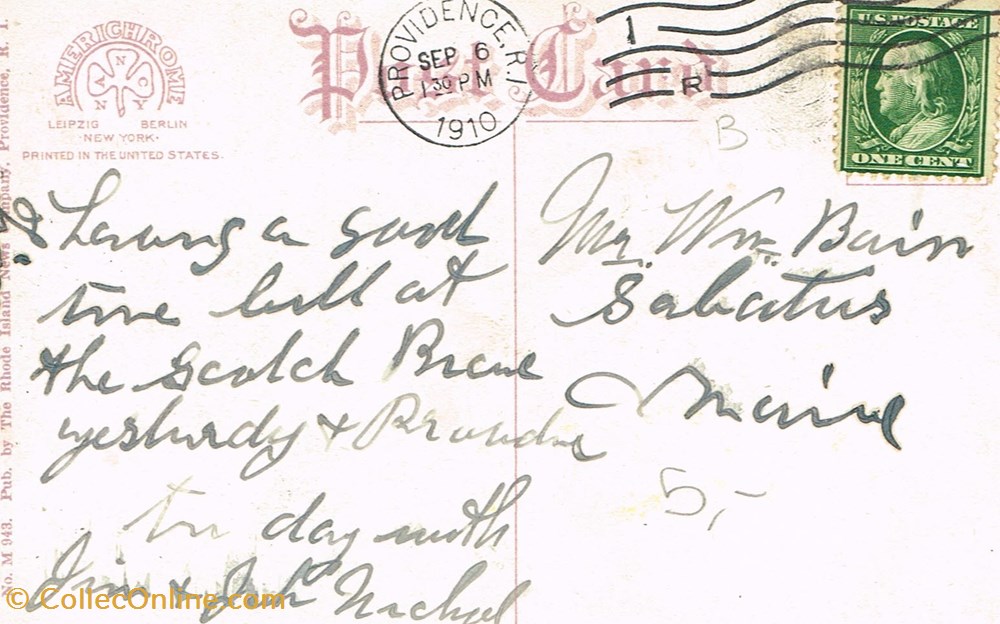 AMERICHROME
A N CO
N Y
LEIPZIG BERLIN
·NEW YORK·
PRINTED IN THE UNITED STATES.
No. M 943. Pub. by The Rhode Island News Company, Providence, R. I.
Post Card
PROVIDENCE, R.I.
SEP 6
130 PM
1910
1
R
U.S. POSTAGE
ONE CENT
B
Having a good
time at
the Scotch
yesturdy &
to day with
Jim & Nichol
Mr. Wm. Bain
Sabatus
Maine
5,-
© CollecOnline.com